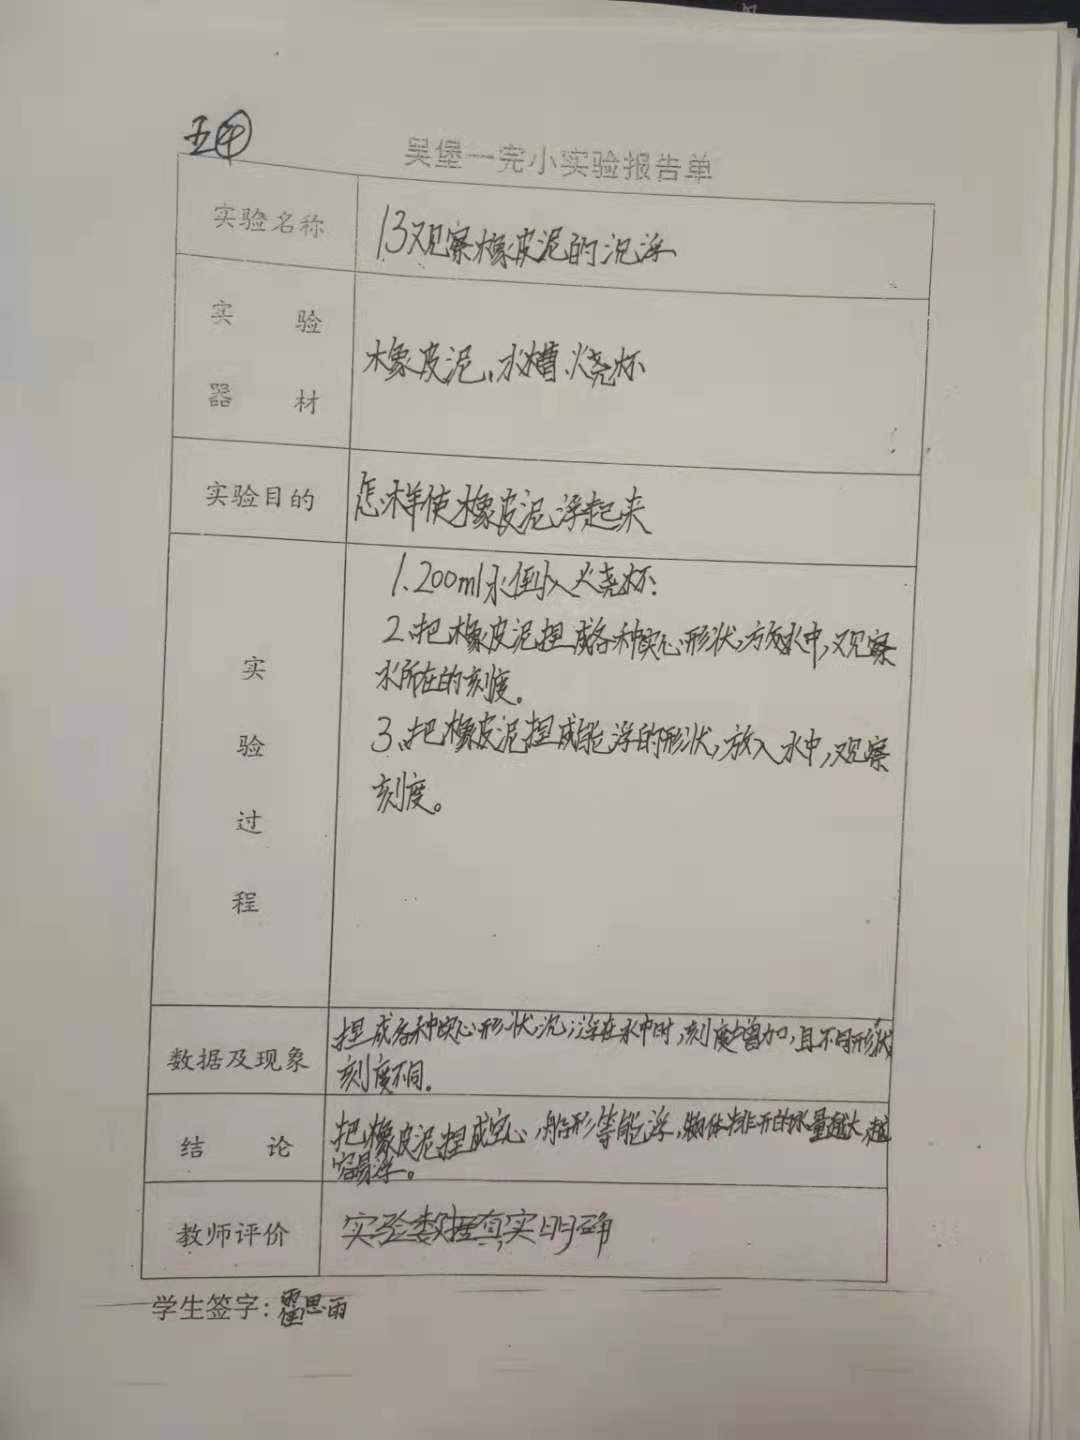 五④
吴堡一完小实验报告单
实验名称
13观察橡皮泥的沉浮
实验
器材
橡皮泥、水槽、烧杯
实验目的
怎样使橡皮泥浮起来
实验过程
1.200ml水倒入烧杯.
2.把橡皮泥捏成各种实心形状,放水中,观察
水所在的刻度。
3、把橡皮泥捏成能浮的形状,放入水中,观察
刻度。
数据及现象
捏成各种实心形状沉,浮在水中时,刻度增加,且不同形状
刻度不同.
结论
把橡皮泥捏成空心,船形等能浮,物体排开的水量越大,越
容易浮。
教师评价
实验数据真实明确
学生签字:霍思雨